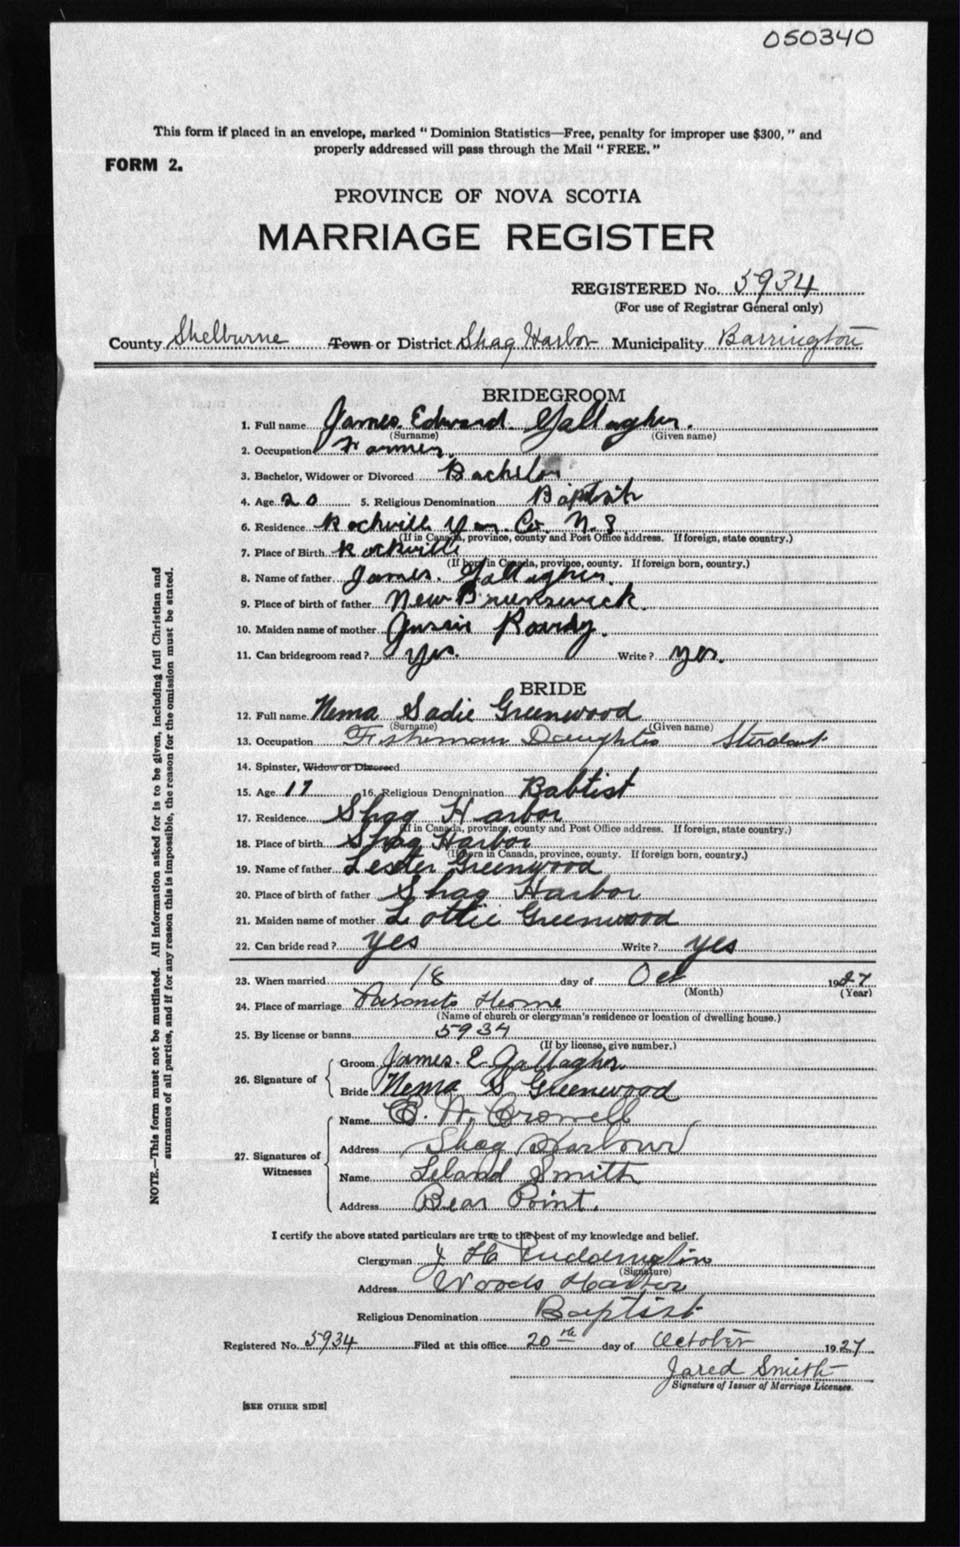 050340
This form if placed in an envelope, marked "Dominion Statistics—Free, penalty for improper use $300," and
properly addressed will pass through the Mail "FREE."
FORM 2.
PROVINCE OF NOVA SCOTIA
MARRIAGE REGISTER
REGISTERED No. 5934
(For use of Registrar General only)
County Shelburne Town or District Shag Harbor Municipality Barrington
BRIDEGROOM
1. Full name James Edward Gallagher.
(Surname) (Given name)
2. Occupation Farmer.
3. Bachelor, Widower or Divorced Bachelor
4. Age 20 5. Religious Denomination Baptist
6. Residence Rockville Yar. Co. N. S
(If in Canada, province, county and Post Office address. If foreign, state country.)
7. Place of Birth Rockville
(If born in Canada, province, county. If foreign born, country.)
8. Name of father James. Gallagher.
9. Place of birth of father New Brunswick.
10. Maiden name of mother
11. Can bridegroom read? Yes. Write? yes.
BRIDE
12. Full name Nema Sadie Greenwood
(Surname) (Given name)
13. Occupation Fisherman Daughter Student
14. Spinster, Widow or Divorced
15. Age 17 16. Religious Denomination Babtist
17. Residence Shag Harbor
(If in Canada, province, county and Post Office address. If foreign, state country.)
18. Place of birth Shag Harbor
(If born in Canada, province, county. If foreign born, country.)
19. Name of father Lester Greenwood
20. Place of birth of father Shag Harbor
21. Maiden name of mother Lottie Greenwood
22. Can bride read? yes Write? yes
23. When married 18 day of Oct 1927
(Month) (Year)
24. Place of marriage Home
(Name of church or clergyman's residence or location of dwelling house.)
25. By license or banns 5934
(If by license, give number.)
26. Signature of
Groom James. E. Gallagher
Bride Nema S Greenwood
27. Signatures of Witnesses
Name E. W. Crowell
Address Shag Harbour
Name Leland Smith
Address Bear Point.
I certify the above stated particulars are true to the best of my knowledge and belief.
Clergyman J H Puddington
(Signature)
Address Woods Harbor
Religious Denomination Baptist
Registered No. 5934 Filed at this office 20th day of October 1927
Jared Smith
Signature of Issuer of Marriage Licenses.
[SEE OTHER SIDE]
NOTE.—This form must not be mutilated. All information asked for is to be given, including full Christian and
surnames of all parties, and if for any reason this is impossible, the reason for the omission must be stated.